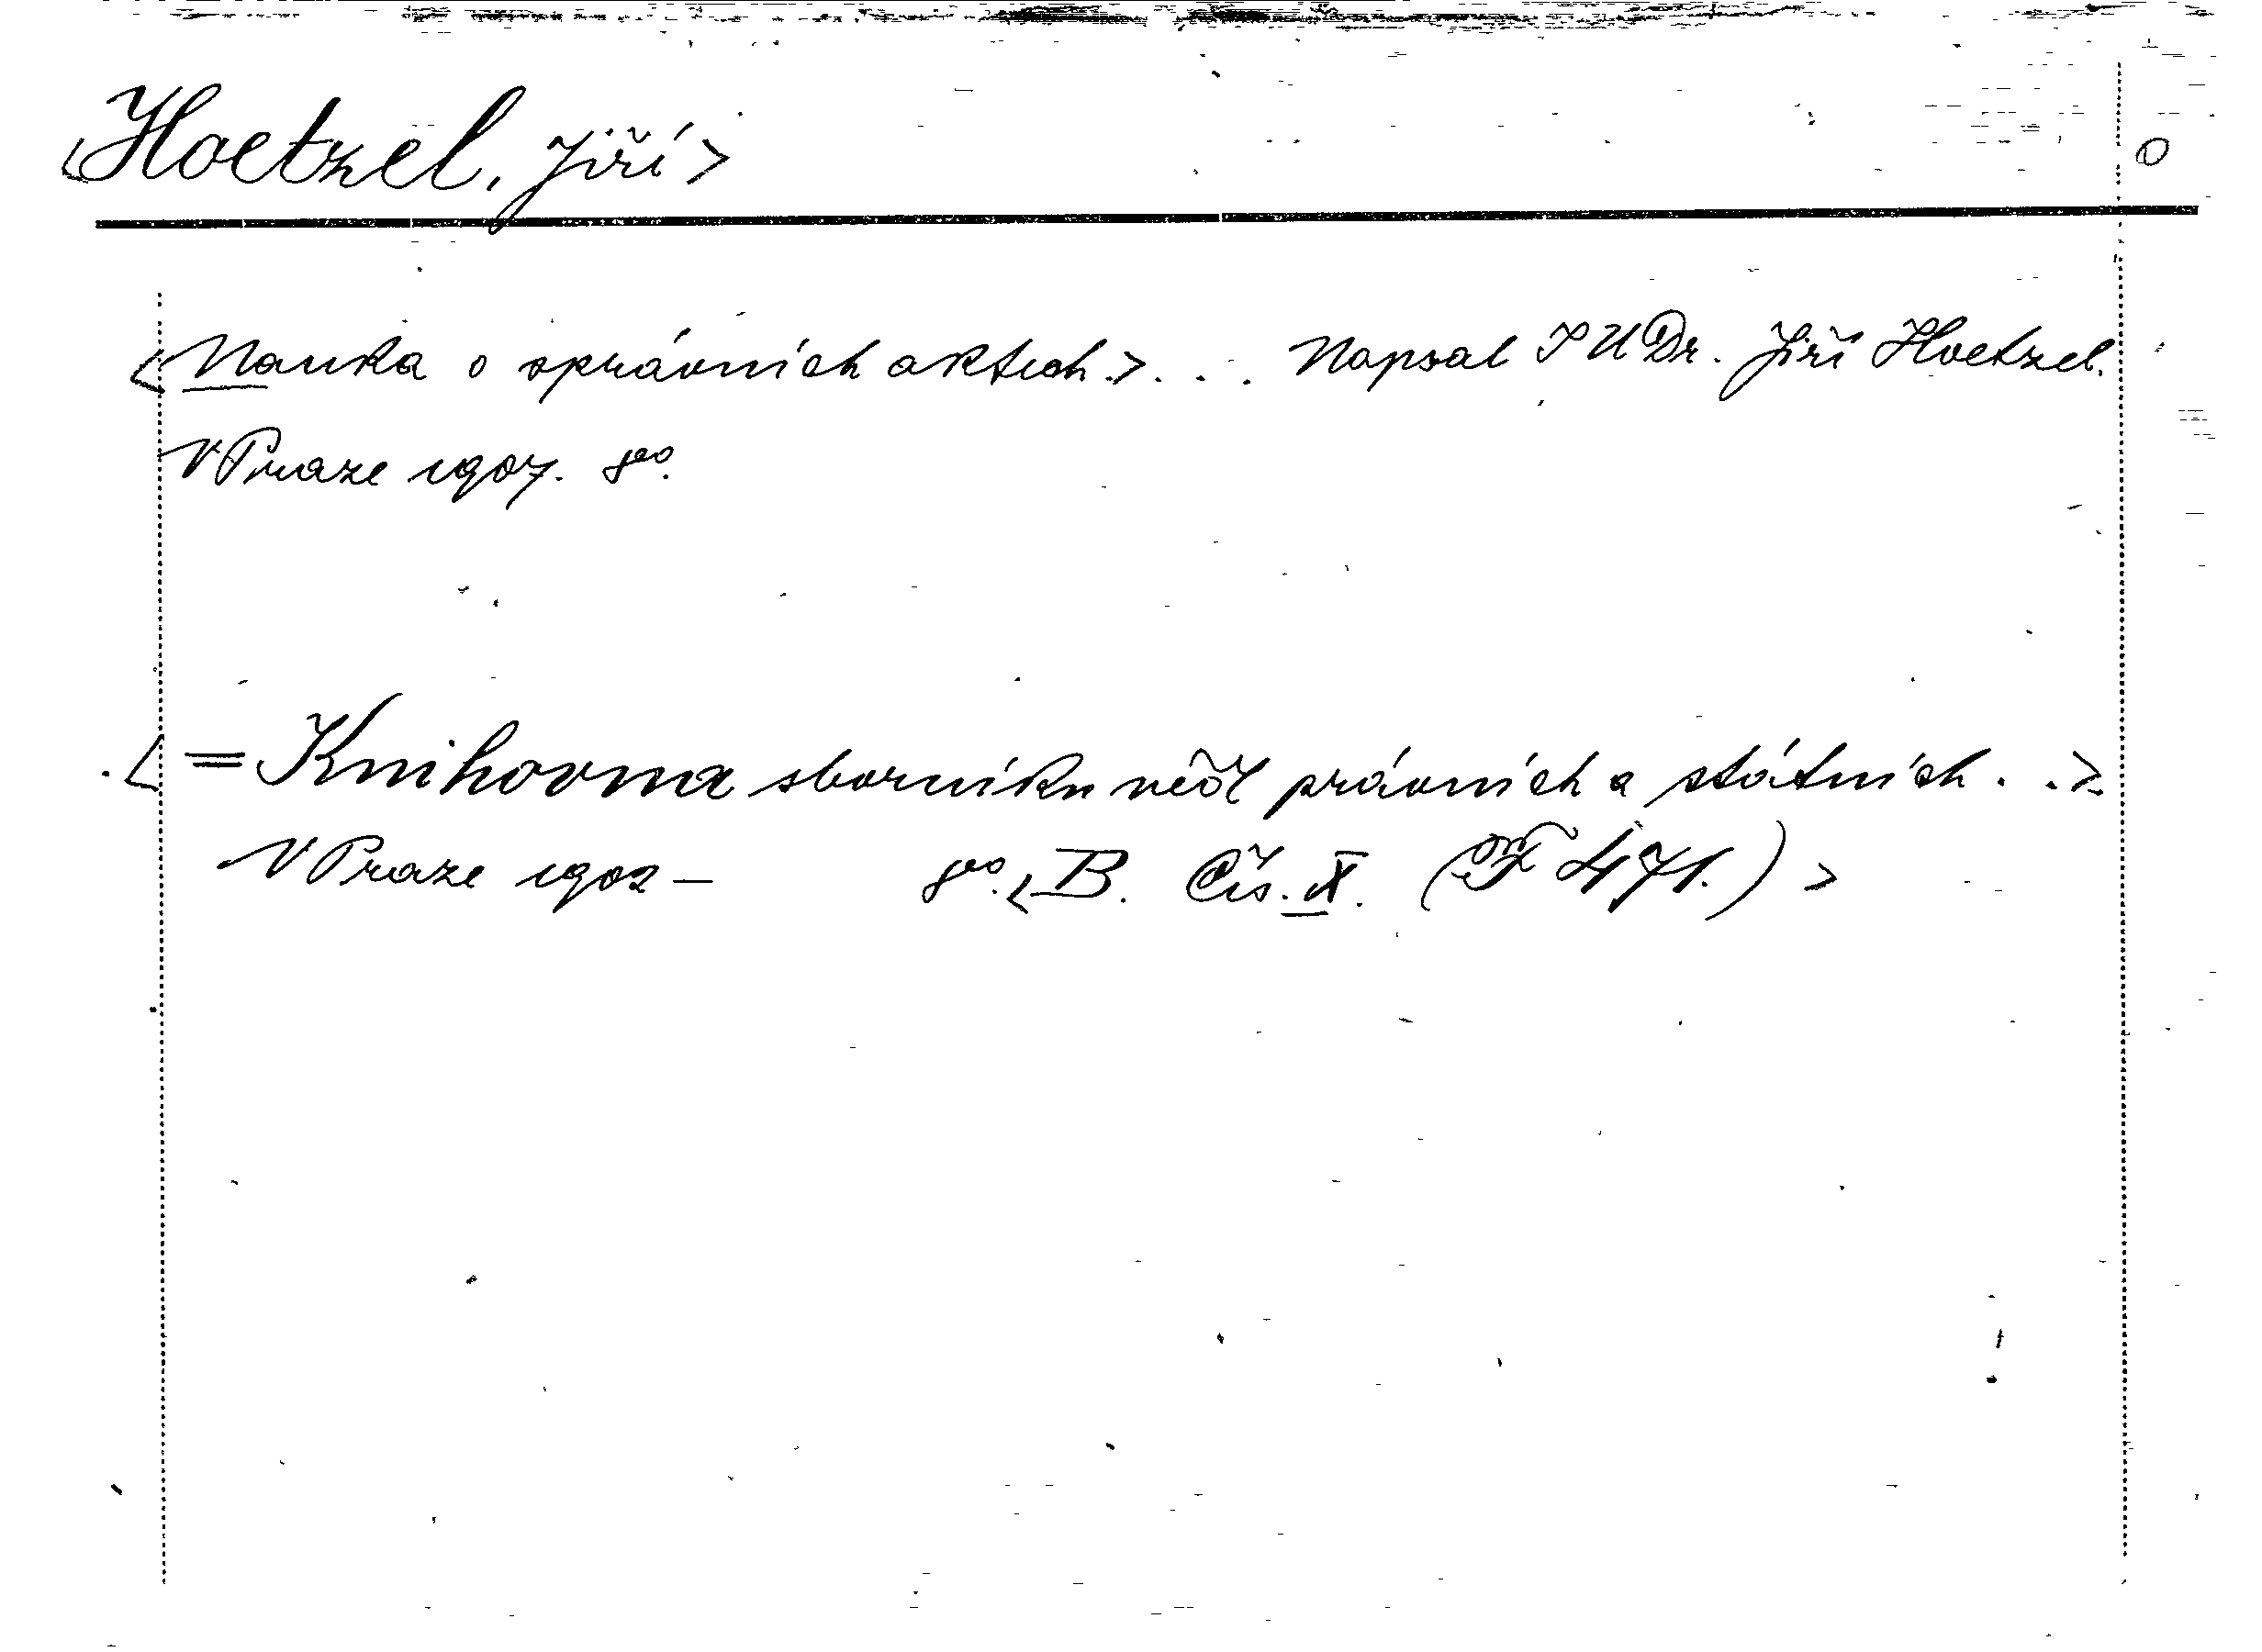 <Hoetzel, Jiří> 0
<Nauka o správních aktech.> . . . Napsal JUDr. Jiří Hoetzel.
V Praze 1907. 8vo.
<= Knihovna sborníku věd právních a státních . . >
V Praze 1902 — 8vo. <B. Čís. X. (F 471.)>